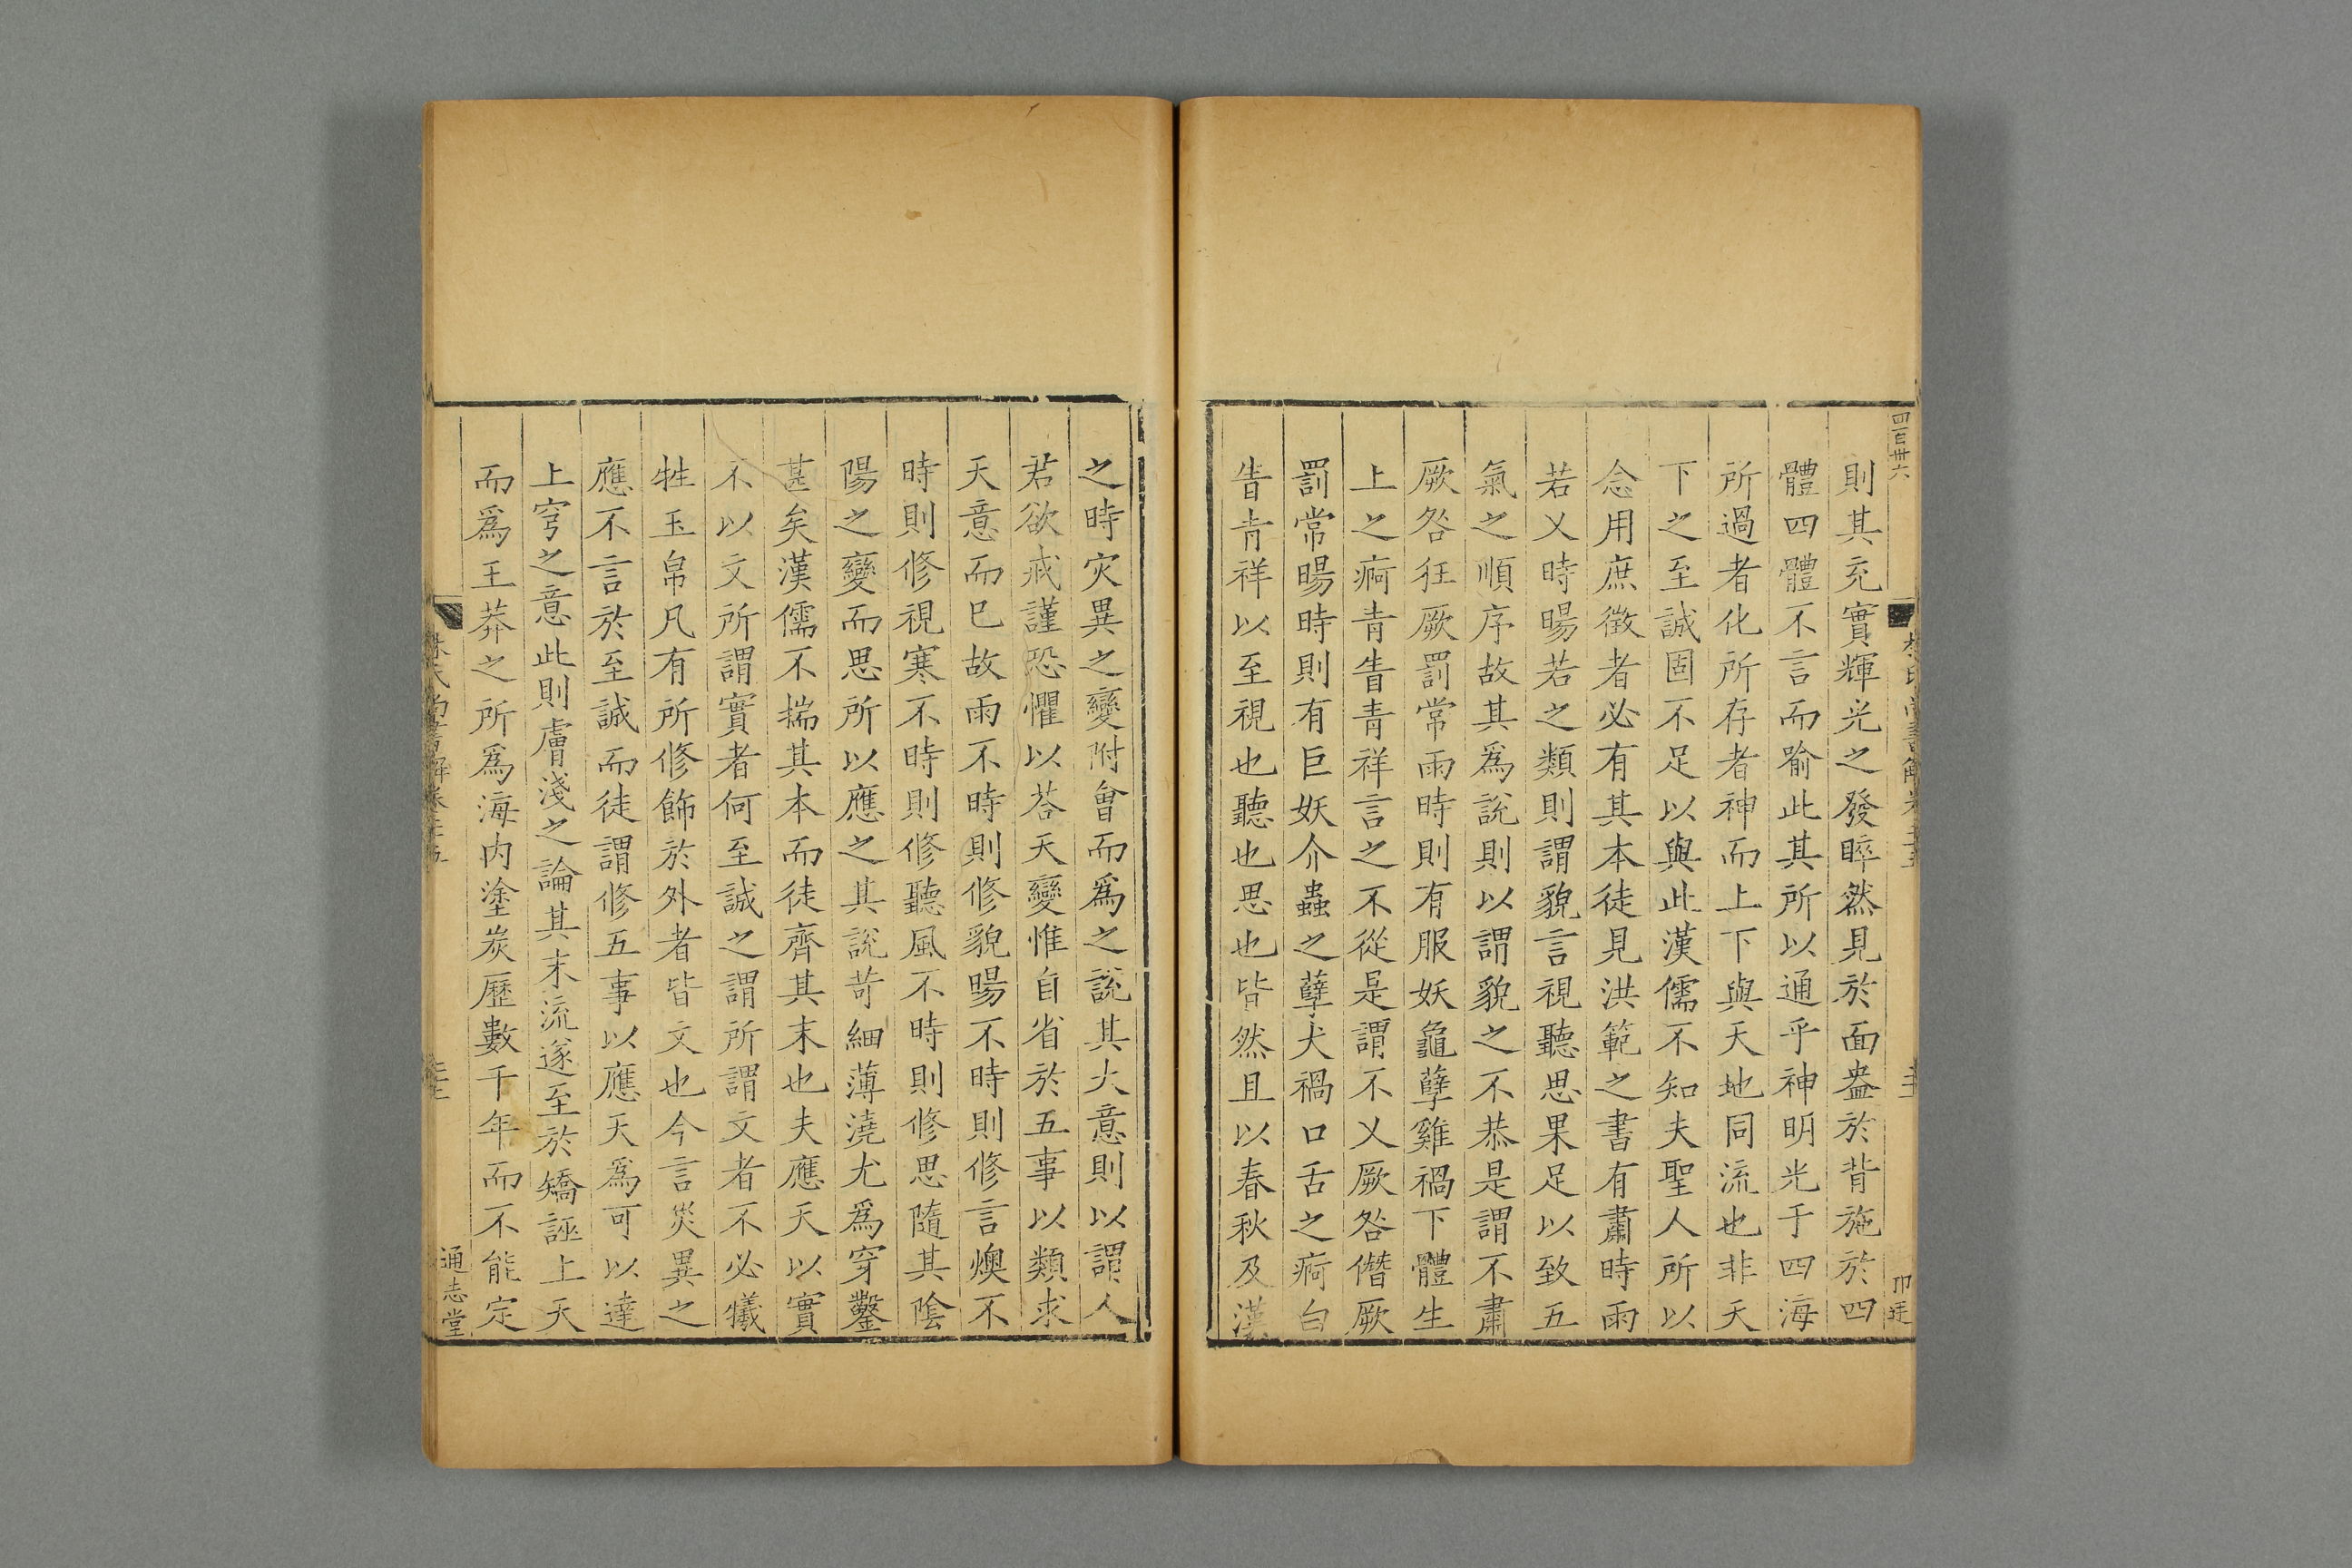 四百卅六
則其充實輝光之發睟然見於面盎於背施於四
體四體不言而喻此其所以通乎神明光于四海
所過者化所存者神而上下與天地同流也非天
下之至誠固不足以與此漢儒不知夫聖人所以
念用庶徵者必有其本徒見洪範之書有肅時雨
若乂時暘若之類則謂貌言視聽思果足以致五
氣之順序故其爲說則以謂貌之不恭是謂不肅
厥咎狂厥罰常雨時則有服妖龜孽雞禍下體生
上之痾青眚青祥言之不從是謂不乂厥咎僭厥
罰常暘時則有巨妖介蟲之孽犬禍口舌之痾白
眚青祥以至視也聽也思也皆然且以春秋及漢
之時灾異之變附會而爲之說其大意則以謂人
君欲戒謹恐懼以荅天變惟自省於五事以類求
天意而已故雨不時則修貌暘不時則修言燠不
時則修視寒不時則修聽風不時則修思隨其陰
陽之變而思所以應之其說苛細薄澆尤爲穿鑿
甚矣漢儒不揣其本而徒齊其末也夫應天以實
不以文所謂實者何至誠之謂所謂文者不必犧
牲玉帛凡有所修飾於外者皆文也今言災異之
應不言於至誠而徒謂修五事以應天爲可以達
上穹之意此則膚淺之論其末流遂至於矯誣上天
而爲王莽之所爲海内塗炭歷數千年而不能定
通志堂